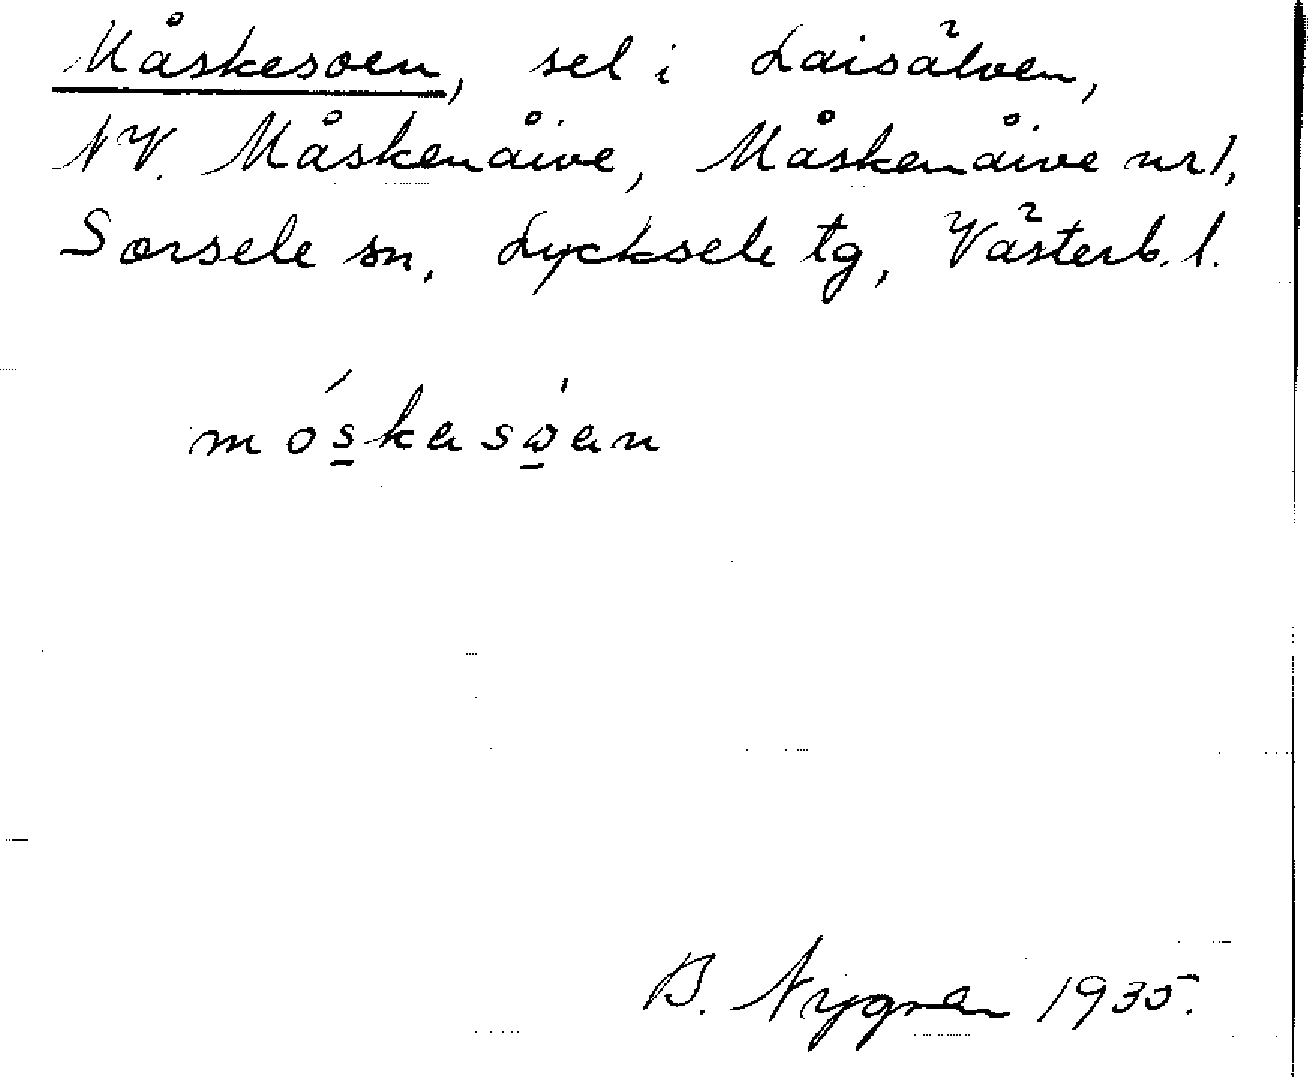 Måskesoen, sel i Laisälven,
NV. Måskenåive, Måskenåive nr 1,
Sorsele sn, Lycksele tg, Västerb. l.
móskasωan
B. Nygren 1935.